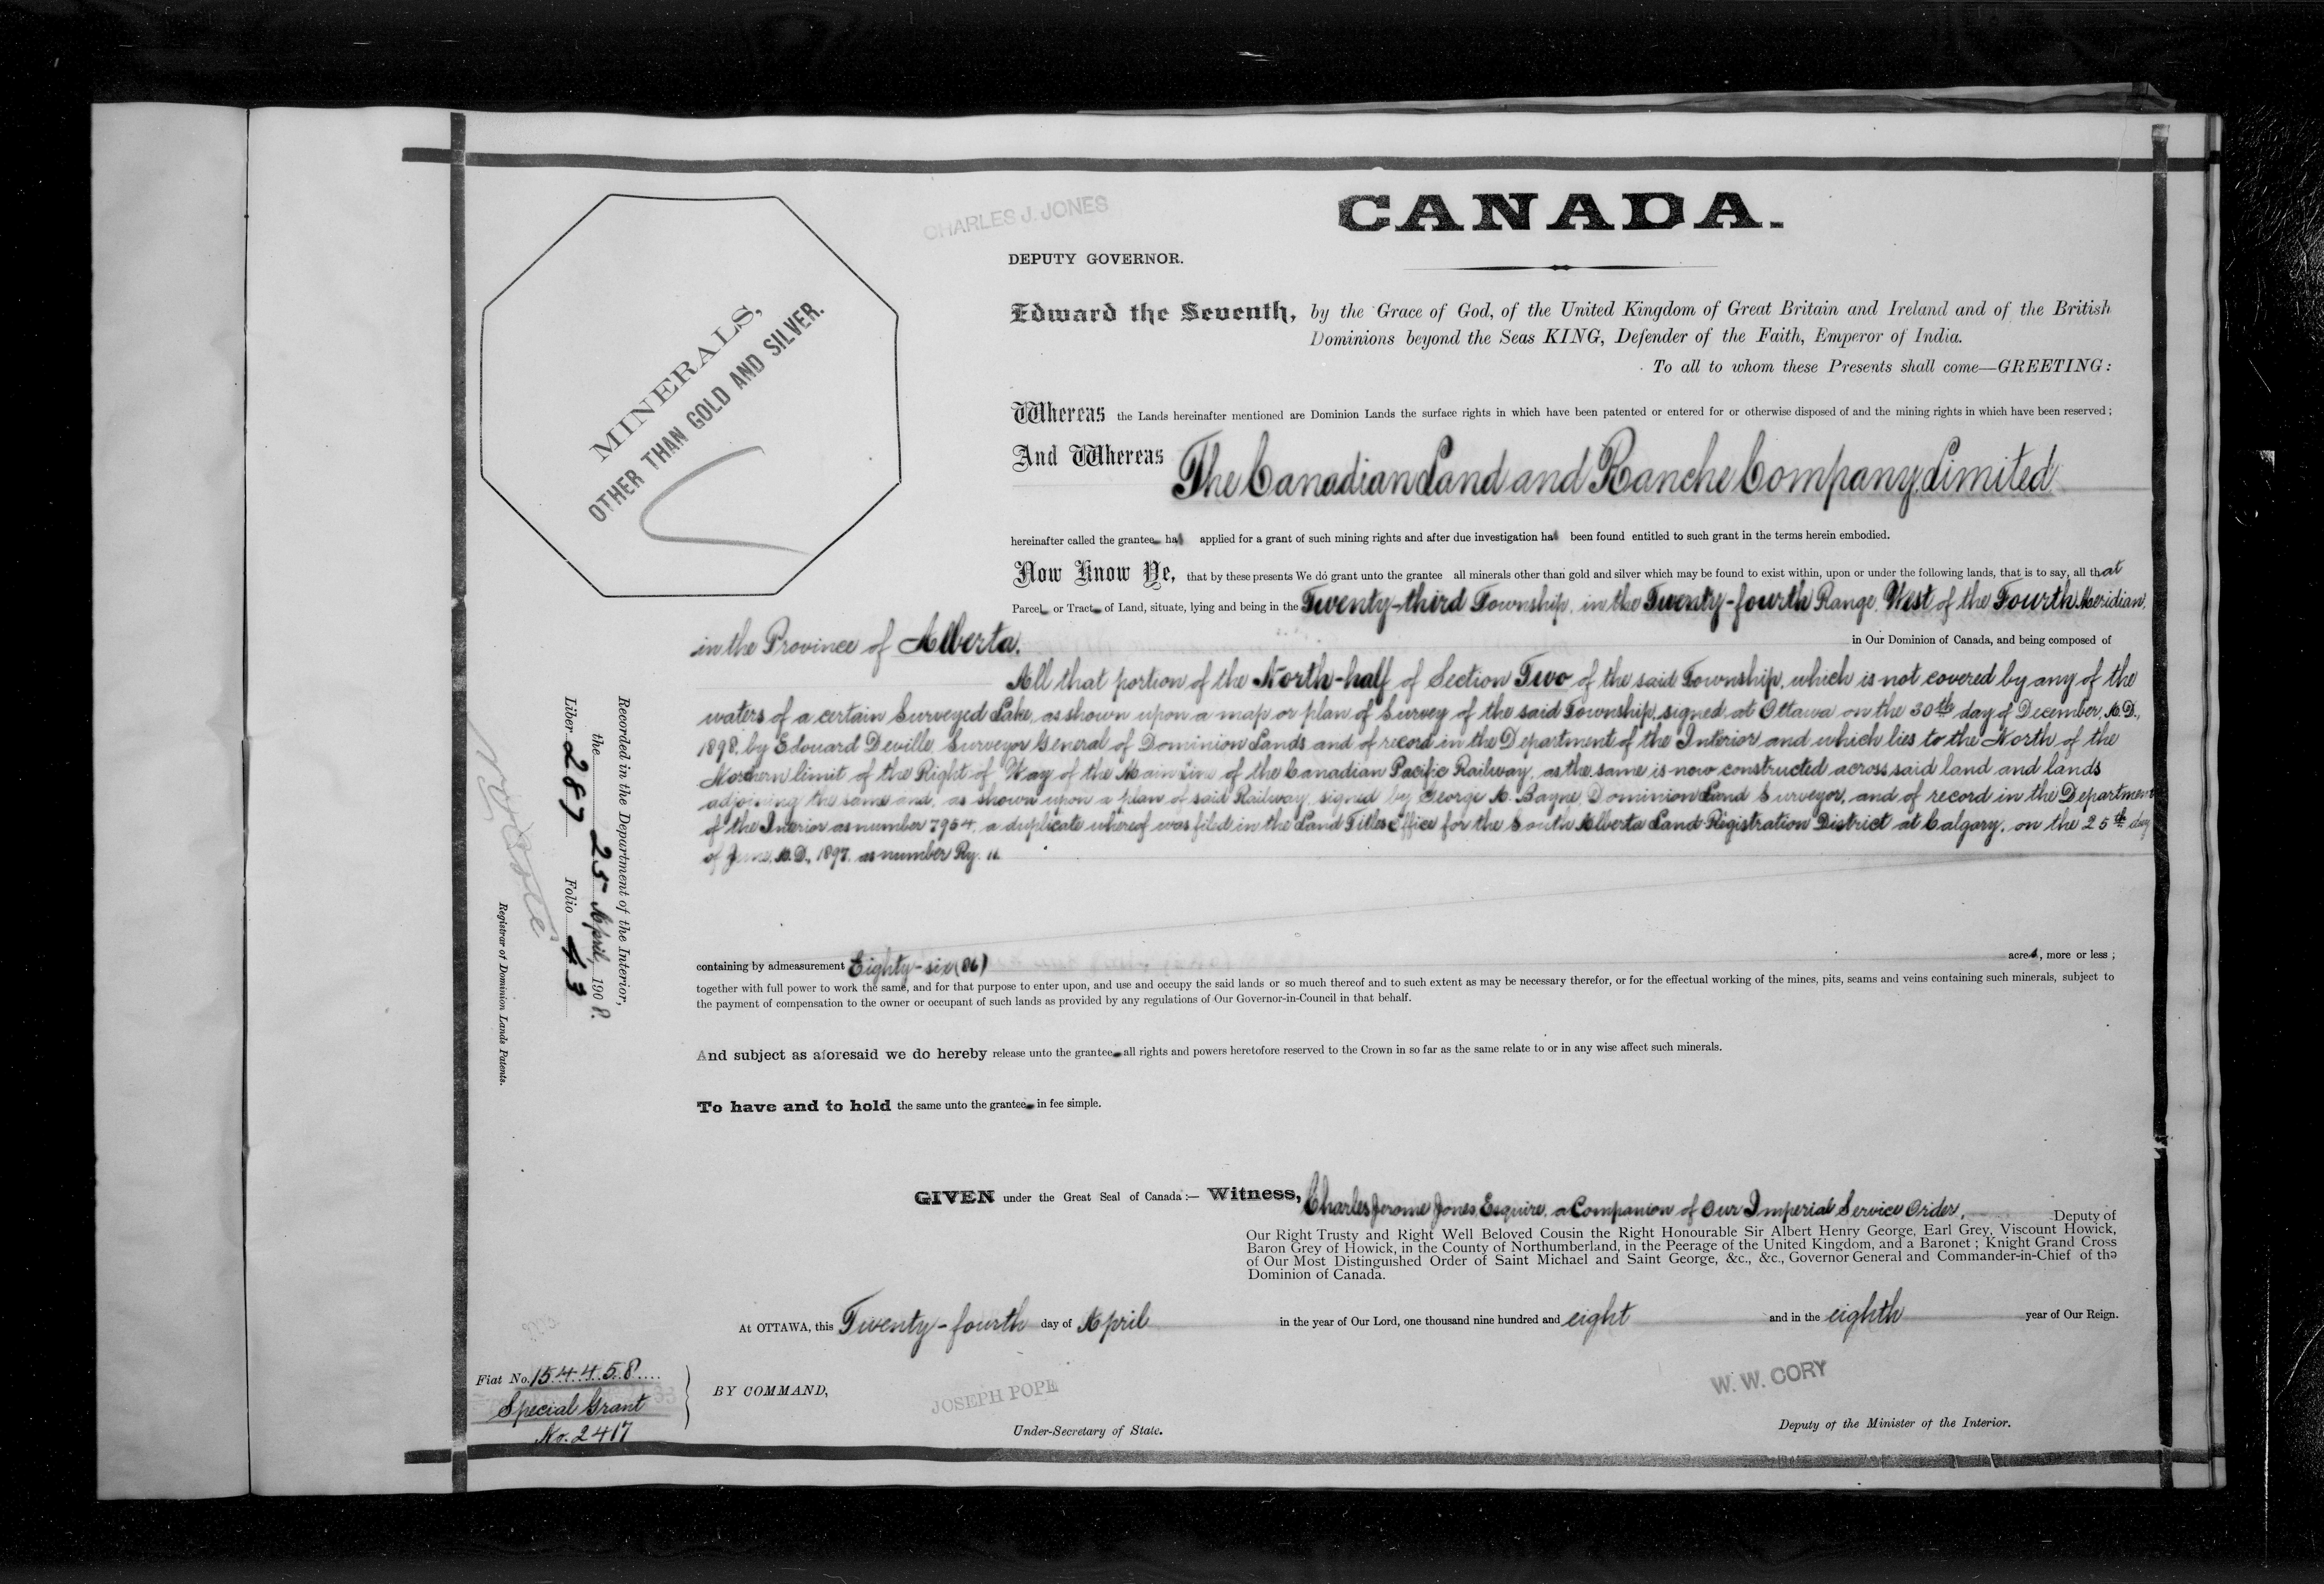 CHARLES J. JONES
CANADA.
DEPUTY GOVERNOR.
Edward the Seventh, by the Grace of God, of the United Kingdom of Great Britain and Ireland and of the British
Dominions beyond the Seas KING, Defender of the Faith, Emperor of India.
To all to whom these Presents shall come—GREETING:
MINERALS,
OTHER THAN GOLD AND SILVER.
Whereas the Lands hereinafter mentioned are Dominion Lands the surface rights in which have been patented or entered for or otherwise disposed of and the mining rights in which have been reserved;
And Whereas The Canadian Land and Ranche Company, Limited
hereinafter called the grantee has applied for a grant of such mining rights and after due investigation has been found entitled to such grant in the terms herein embodied.
Now Know Ye, that by these presents We do grant unto the grantee all minerals other than gold and silver which may be found to exist within, upon or under the following lands, that is to say, all that
Parcel or Tract of Land, situate, lying and being in the Twenty-third Township, in the Twenty-fourth Range, West of the Fourth Meridian,
in the Province of Alberta. in Our Dominion of Canada, and being composed of
All that portion of the North-half of Section Two of the said Township, which is not covered by any of the
waters of a certain Surveyed Lake, as shown upon a map or plan of Survey of the said Township, signed at Ottawa on the 30th day of December, A.D.,
1898, by Edouard Deville, Surveyor General of Dominion Lands and of record in the Department of the Interior and which lies to the North of the
Northern limit of the Right of Way of the Main Line of the Canadian Pacific Railway, as the same is now constructed across said land and lands
adjoining the same and, as shown upon a plan of said Railway, signed by George A. Bayne, Dominion Land Surveyor, and of record in the Department
of the Interior as number 7964, a duplicate whereof was filed in the Land Titles Office for the South Alberta Land Registration District at Calgary, on the 25th day
of June, A.D., 1897, as number Ry. 11.
containing by admeasurement Eighty-six (86) acres, more or less;
together with full power to work the same, and for that purpose to enter upon, and use and occupy the said lands or so much thereof and to such extent as may be necessary therefor, or for the effectual working of the mines, pits, seams and veins containing such minerals, subject to
the payment of compensation to the owner or occupant of such lands as provided by any regulations of Our Governor-in-Council in that behalf.
And subject as aforesaid we do hereby release unto the grantee all rights and powers heretofore reserved to the Crown in so far as the same relate to or in any wise affect such minerals.
To have and to hold the same unto the grantee in fee simple.
Recorded in the Department of the Interior,
the 25 April, 1908.
Liber 287 Folio 43
Registrar of Dominion Lands Patents.
GIVEN under the Great Seal of Canada:— Witness, Charles Jerome Jones, Esquire, a Companion of Our Imperial Service Order, Deputy of
Our Right Trusty and Right Well Beloved Cousin the Right Honourable Sir Albert Henry George, Earl Grey, Viscount Howick,
Baron Grey of Howick, in the County of Northumberland, in the Peerage of the United Kingdom, and a Baronet; Knight Grand Cross
of Our Most Distinguished Order of Saint Michael and Saint George, &c., &c., Governor General and Commander-in-Chief of the
Dominion of Canada.
At OTTAWA, this Twenty-fourth day of April in the year of Our Lord, one thousand nine hundred and eight and in the eighth year of Our Reign.
Fiat No. 154458
Special Grant
No. 2417
BY COMMAND,
JOSEPH POPE
Under-Secretary of State.
W. W. CORY
Deputy of the Minister of the Interior.